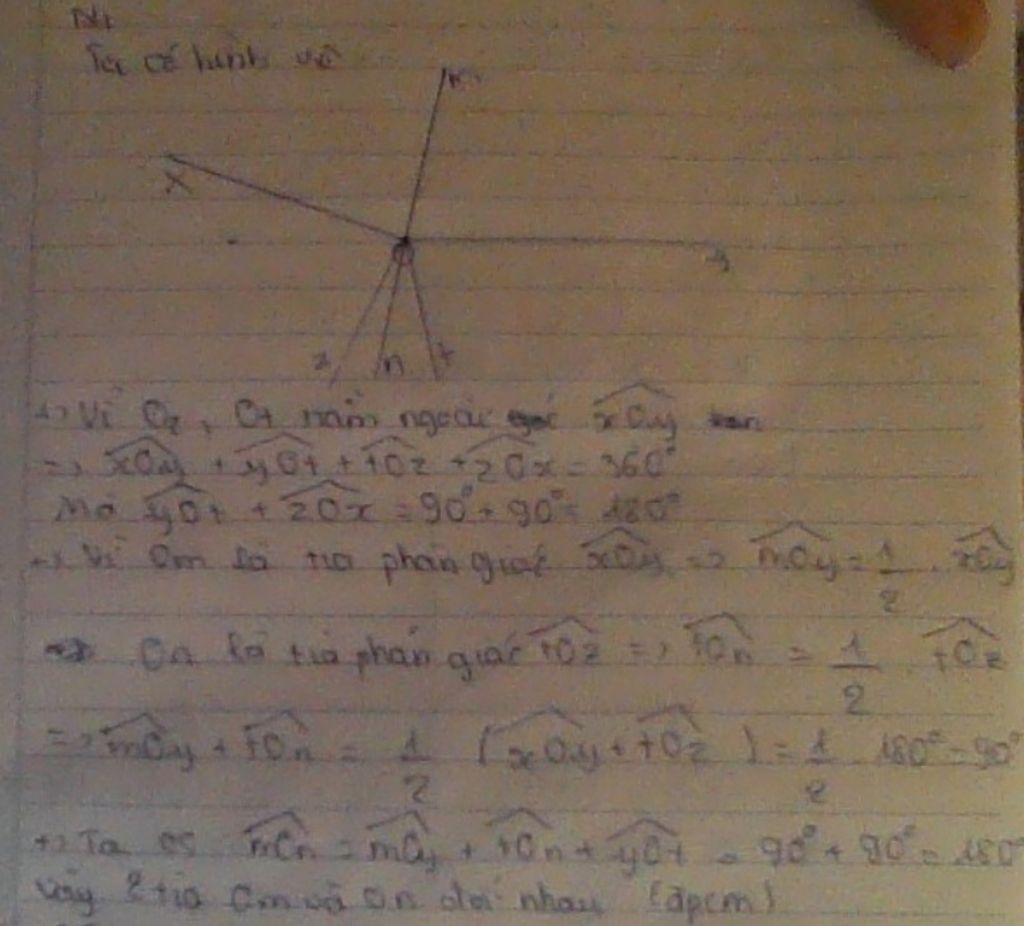 N1
Ta có hình vẽ
m
x
y
z n t
+) Vì Oz, Ot nằm ngoài góc xOy
=> xOy + yOt + tOz + zOx = 360°
Mà yOt + zOx = 90° + 90° = 180°
+) Vì Om là tia phân giác xOy => mOy = 1/2 . xOy
=> On là tia phân giác tOz => tOn = 1/2 . tOz
=> mOy + tOn = 1/2 (xOy + tOz) = 1/2 . 180° = 90°
+) Ta có mOn = mOy + tOn + yOt = 90° + 90° = 180°
Vậy 2 tia Om và On đối nhau (đpcm)